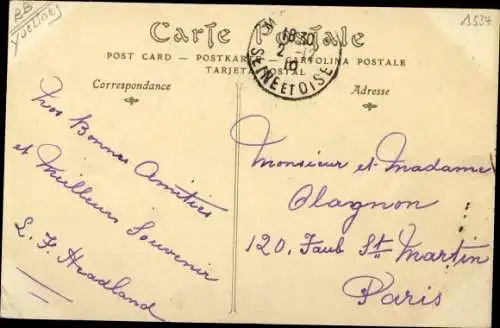 BB
Yvelines
1534
Carte Postale
POST CARD — POSTKARTE — CARTOLINA POSTALE
TARJETA POSTAL
18 30
SEINE ET OISE
Correspondance
Adresse
Bonnes Amitiés
et Meilleur Souvenir
L. F. Headland
Monsieur et Madame
Olagnon
120, Faub St Martin
Paris